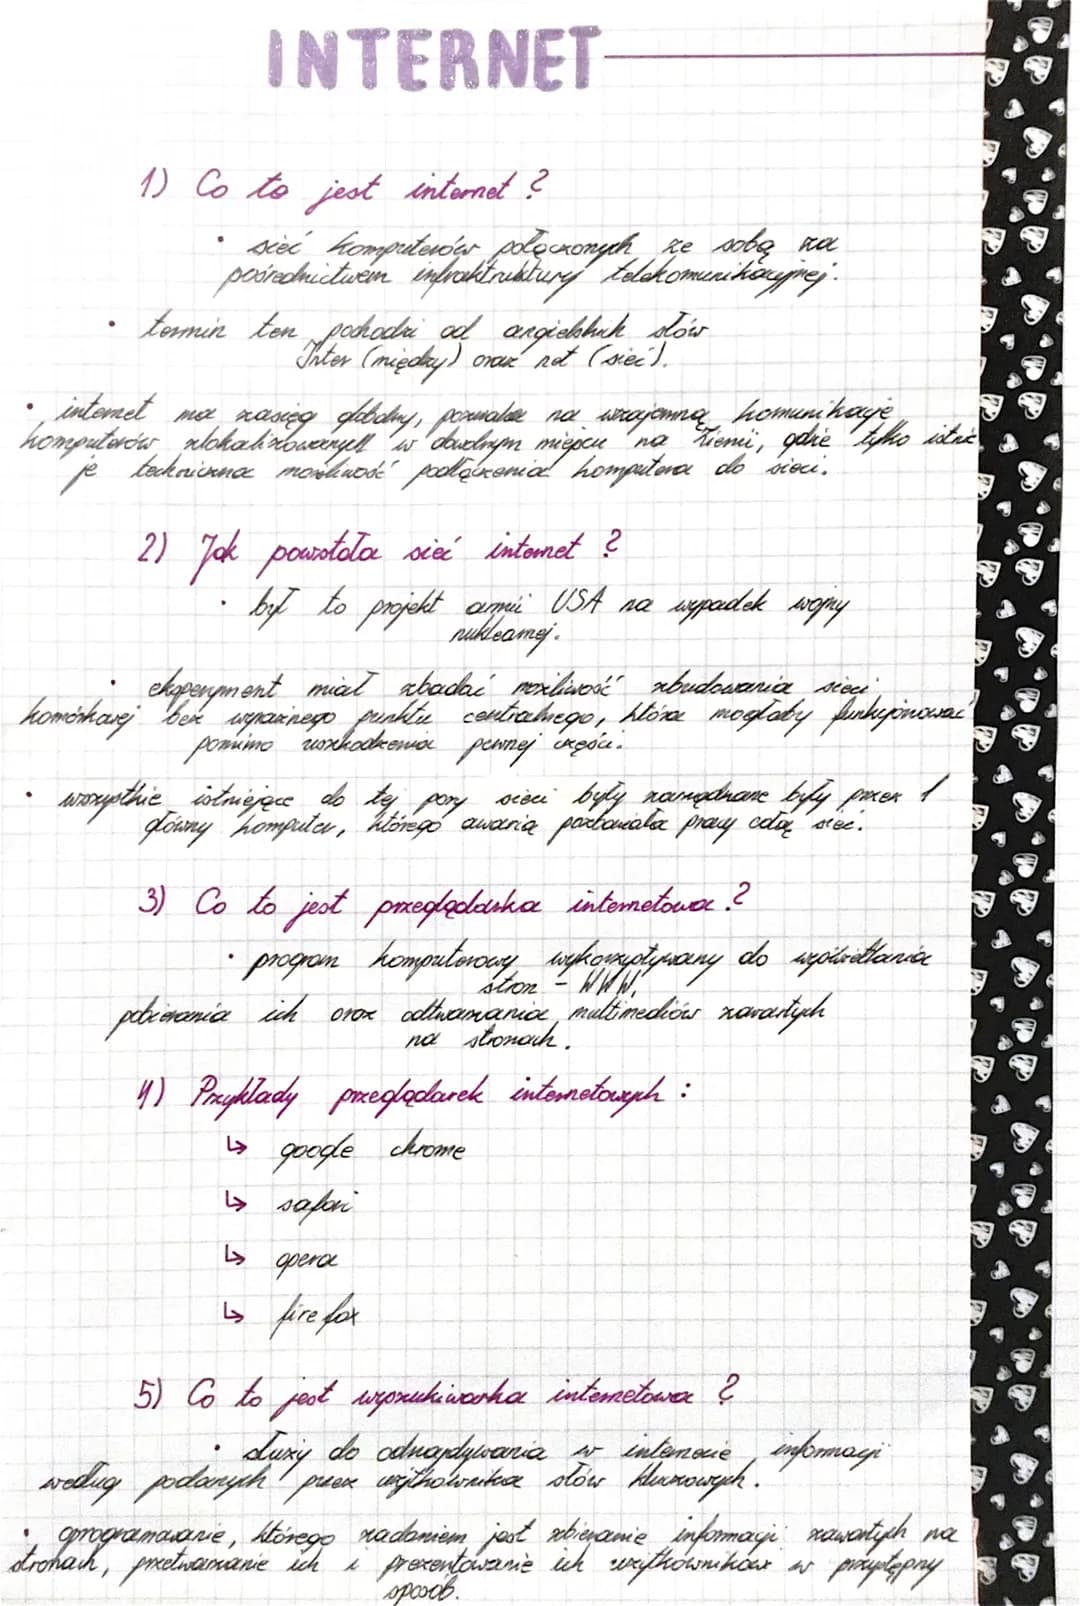 INTERNET
1) Co to jest internet?
• sieć komputerów połączonych ze sobą za
pośrednictwem infraktruktury telekomunikacyjnej.
• termin ten pochodzi od angielskich słów
Inter (między) oraz net (sieć).
• internet ma zasięg globalny, pozwala na wzajemną komunikację
komputerów zlokalizowanych w dowolnym miejscu na Ziemi, gdzie tylko istnie
je techniczna możliwość podłączenia komputera do sieci.
2) Jak powstała sieć internet?
• był to projekt armii USA na wypadek wojny
nuklearnej.
• eksperyment miał zbadać możliwość zbudowania sieci
komórkowej bez wyraźnego punktu centralnego, która mogłaby funkcjonować
pomimo uszkodzenia pewnej części.
• wszystkie istniejące do tej pory sieci były zarządzane były przez 1
główny komputer, którego awaria pozbawiała pracy całą sieć.
3) Co to jest przeglądarka internetowa?
• program komputerowy wykorzystywany do wyświetlania
stron - WWW,
pobierania ich oraz odtwarzania multimediów zawartych
na stronach.
4) Przykłady przeglądarek internetowych:
↳ google chrome
↳ safari
↳ opera
↳ firefox
5) Co to jest wyszukiwarka internetowa?
• służy do odnajdywania w internecie informacji
według podanych przez użytkownika słów kluczowych.
• oprogramowanie, którego zadaniem jest zbieranie informacji zawartych na
stronach, przetwarzanie ich i prezentowanie ich użytkownikom w przystępny
sposób.